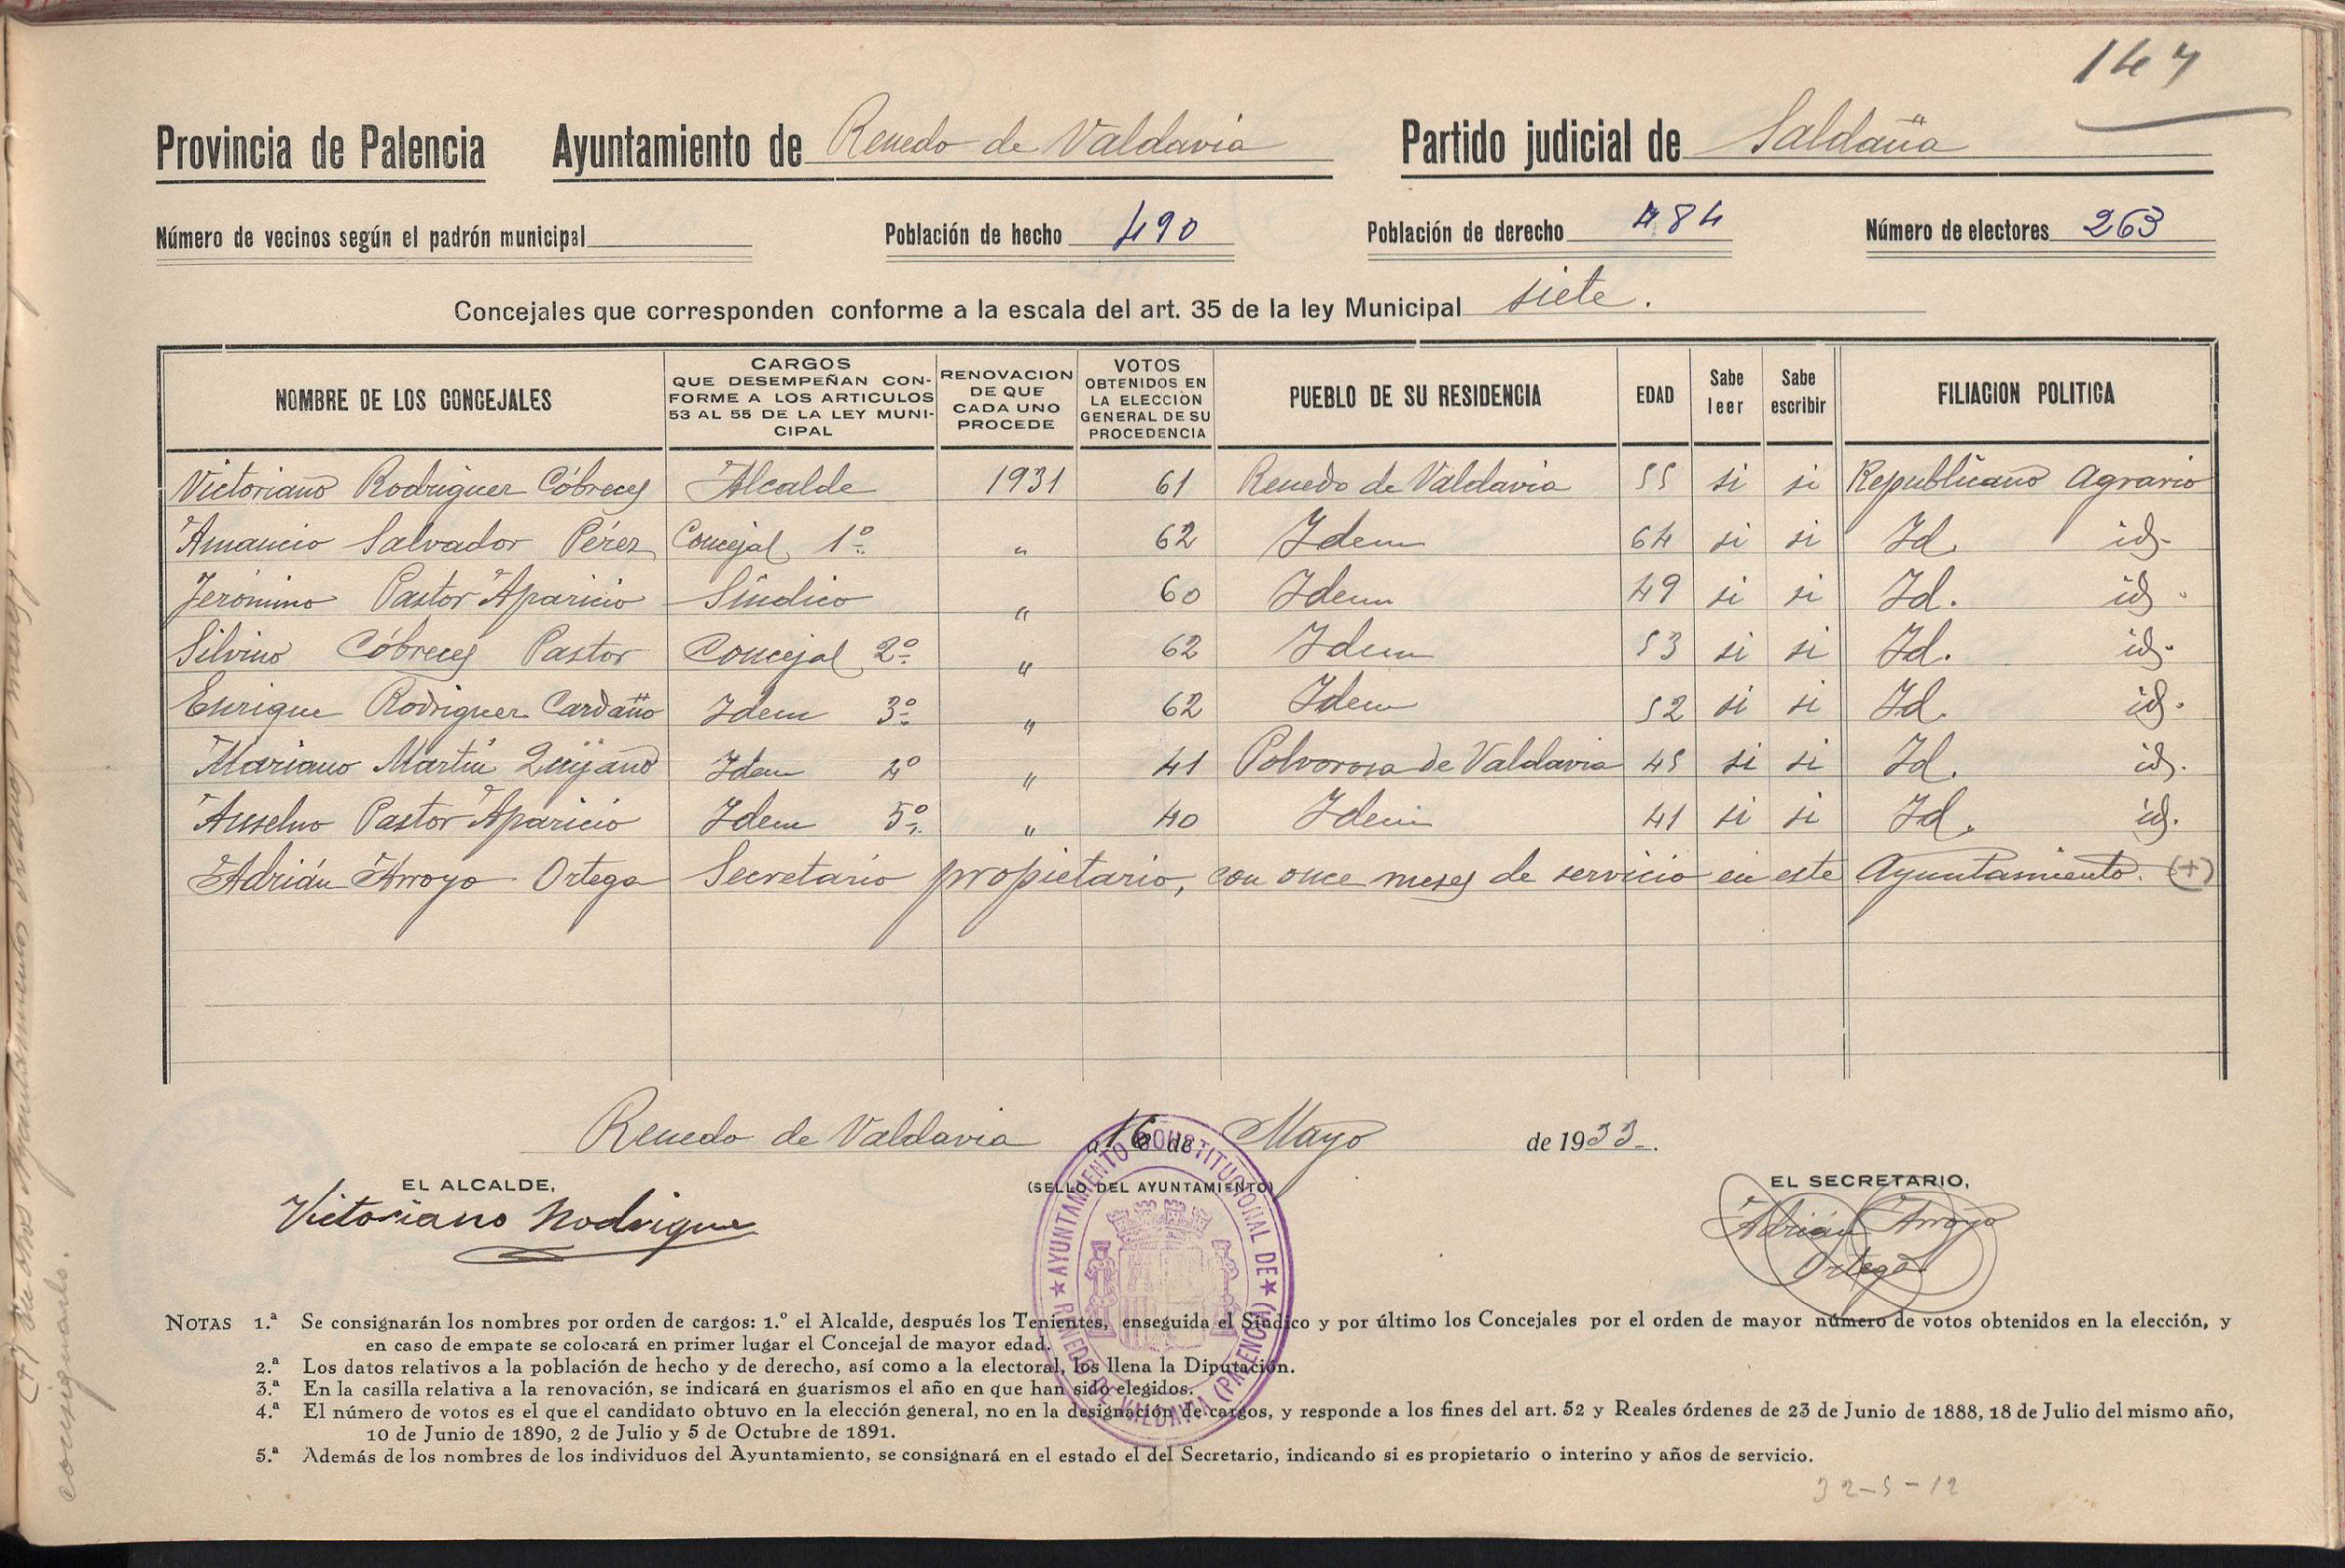 147
Provincia de Palencia Ayuntamiento de Renedo de Valdavia Partido judicial de Saldaña
Número de vecinos según el padrón municipal Población de hecho 490 Población de derecho 484 Número de electores 263
Concejales que corresponden conforme a la escala del art. 35 de la ley Municipal siete.
NOMBRE DE LOS CONCEJALES
CARGOS
QUE DESEMPEÑAN CON-
FORME A LOS ARTICULOS
53 AL 55 DE LA LEY MUNI-
CIPAL
RENOVACION
DE QUE
CADA UNO
PROCEDE
VOTOS
OBTENIDOS EN
LA ELECCIÓN
GENERAL DE SU
PROCEDENCIA
PUEBLO DE SU RESIDENCIA
EDAD
Sabe
leer
Sabe
escribir
FILIACION POLITICA
Victoriano Rodriguez Cóbreces Alcalde 1931 61 Renedo de Valdavia 55 si si Republicano Agrario
Amancio Salvador Pérez Concejal 1º " 62 Idem 64 si si Id. id.
Jerónimo Pastor Aparicio Síndico " 60 Idem 49 si si Id. id.
Silvino Cóbreces Pastor Concejal 2º " 62 Idem 53 si si Id. id.
Enrique Rodriguez Cardaño Idem 3º " 62 Idem 52 si si Id. id.
Mariano Martín Quijano Idem 4º " 41 Polvorosa de Valdavia 45 si si Id. id.
Anselmo Pastor Aparicio Idem 5º " 40 Idem 41 si si Id. id.
Adrián Arroyo Ortega Secretario propietario, con once meses de servicio en este Ayuntamiento. (+)
Renedo de Valdavia a 16 de Mayo de 1933.
EL ALCALDE,
Victoriano Rodrigue
(SELLO DEL AYUNTAMIENTO)
AYUNTAMIENTO CONSTITUCIONAL DE
RENEDO DE VALDAVIA (PALENCIA)
EL SECRETARIO,
Adrián Arroyo
Ortega
NOTAS 1.ª Se consignarán los nombres por orden de cargos: 1.º el Alcalde, después los Tenientes, enseguida el Síndico y por último los Concejales por el orden de mayor número de votos obtenidos en la elección, y
en caso de empate se colocará en primer lugar el Concejal de mayor edad.
2.ª Los datos relativos a la población de hecho y de derecho, así como a la electoral, los llena la Diputación.
3.ª En la casilla relativa a la renovación, se indicará en guarismos el año en que han sido elegidos.
4.ª El número de votos es el que el candidato obtuvo en la elección general, no en la designación de cargos, y responde a los fines del art. 52 y Reales órdenes de 23 de Junio de 1888, 18 de Julio del mismo año,
10 de Junio de 1890, 2 de Julio y 5 de Octubre de 1891.
5.ª Además de los nombres de los individuos del Ayuntamiento, se consignará en el estado el del Secretario, indicando si es propietario o interino y años de servicio.
32-5-12
(+) En otros Ayuntamientos
consignarlo.